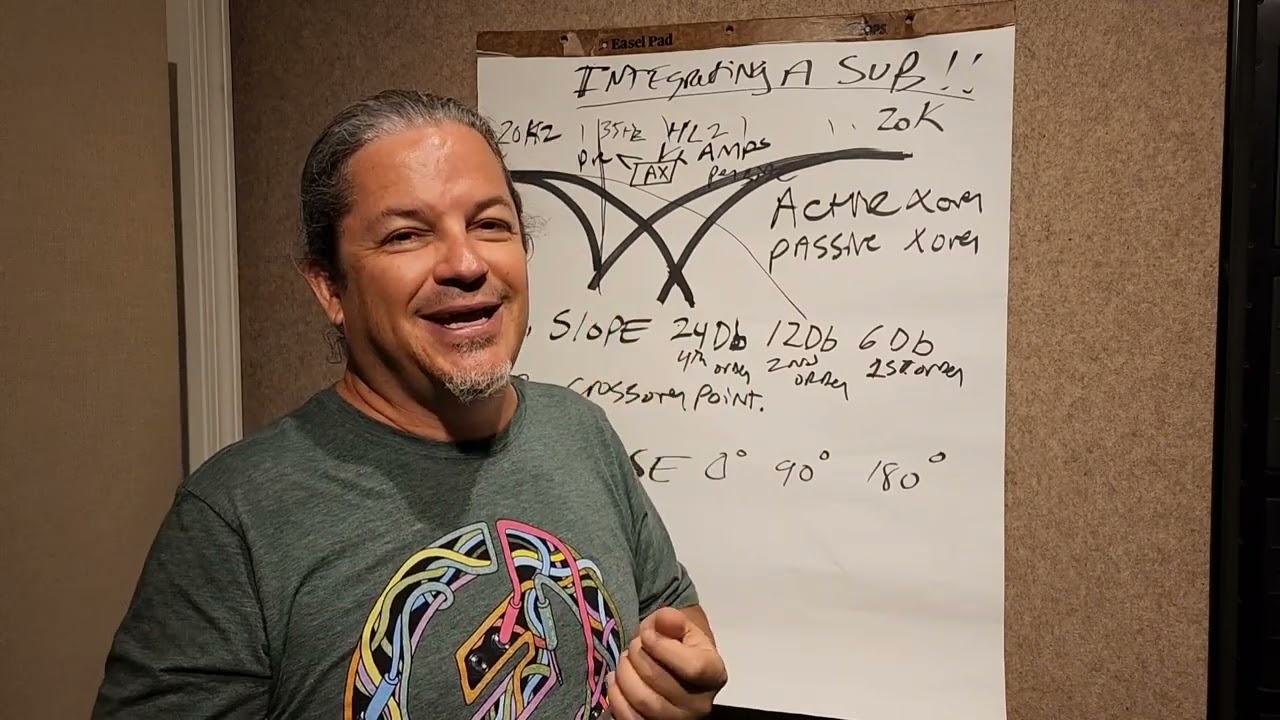 Easel Pad
INTEgrating A SUB!!
20K
35Hz
AMPS
AX
Active Xover
passive Xover
SlOPE 24Db 12Db 6Db
4th order 2nd order 1st order
crossover point.
SE 0° 90° 180°